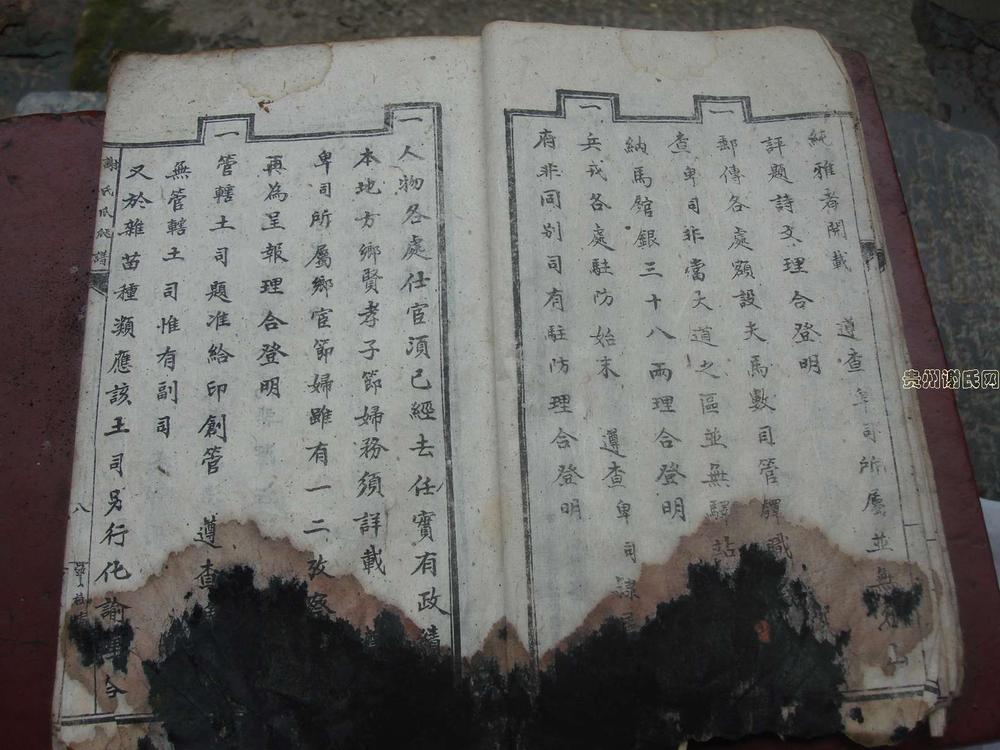 純雅者開載 遵查卑司所屬並無名山
評題詩文理合登明
一郵傳各處額設夫馬數司管驛職
查卑司非當大道之區並無驛站
納馬館銀三十八兩理合登明
一兵戎各處駐防始末 遵查卑司隸
府非同别司有駐防理合登明
一人物各處仕官須已經去任實有政績
本地方鄉賢孝子節婦務須詳載
卑司所屬鄉宦節婦雖有一二攷察
再為呈報理合登明
一管轄土司題准給印創管 遵查
無管轄土司惟有副司
又於雜苗種類應該土司另行化諭
謝氏氏譜
八
贵州谢氏网